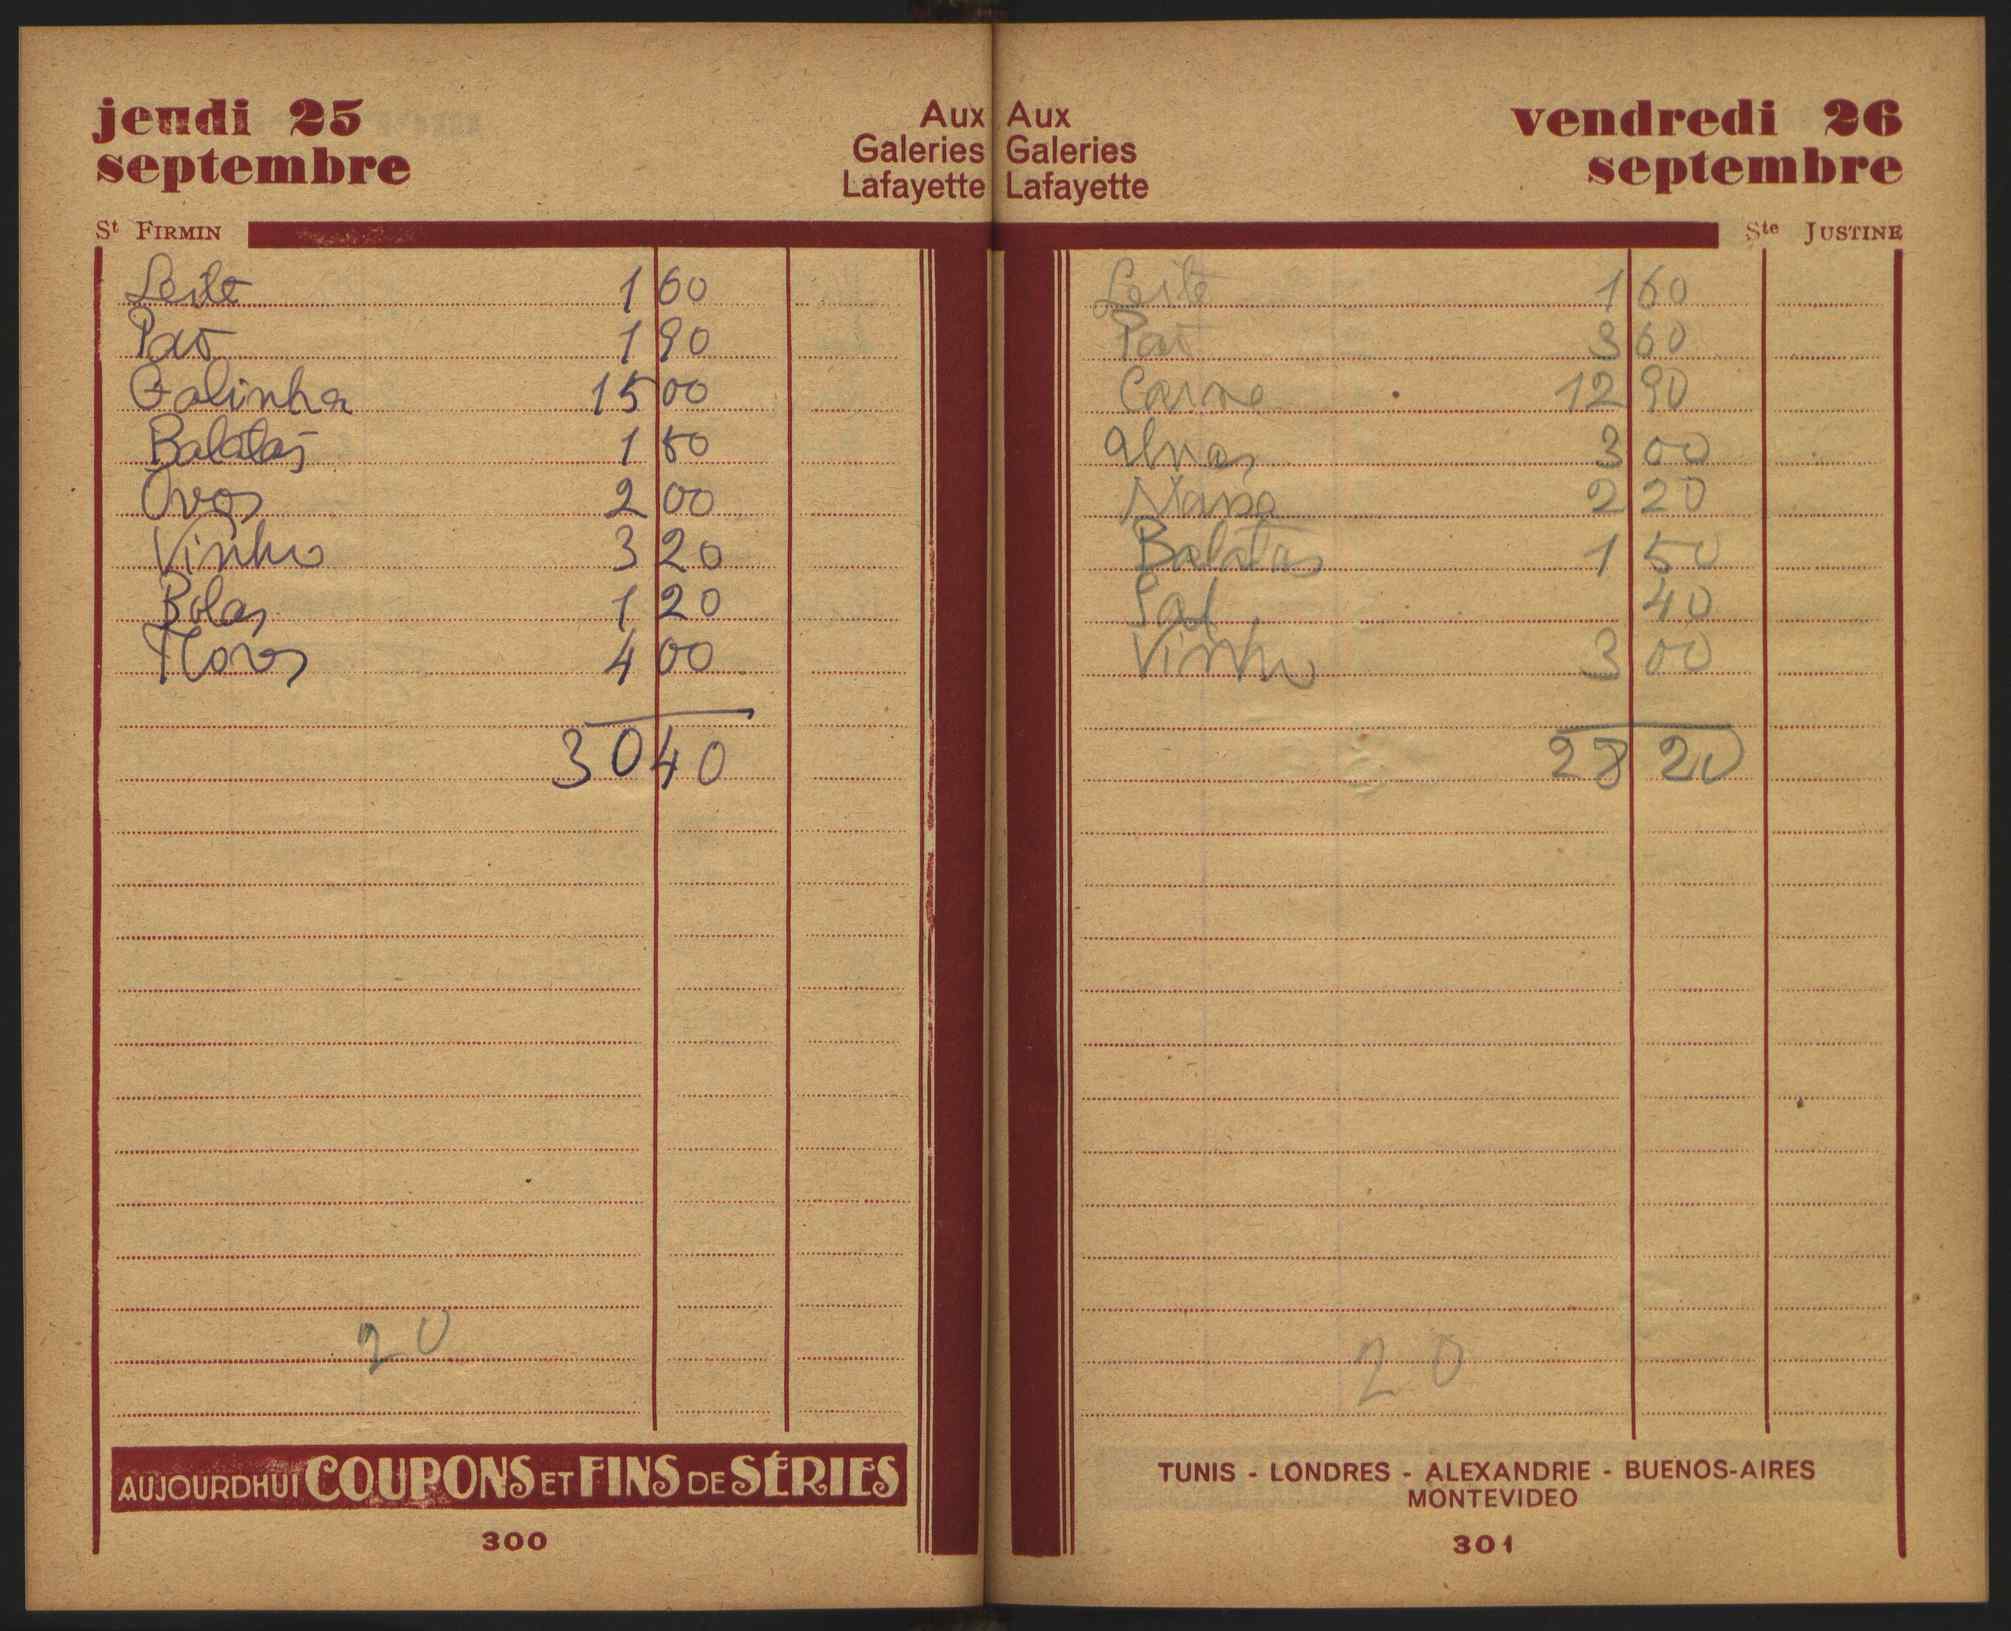 jeudi 25
septembre
Aux
Galeries
Lafayette
St FIRMIN
Leite 1 60
Pao 1 90
Galinha 15 00
Batatas 1 50
Ovos 2 00
Vinho 3 20
Bolas 1 20
Flores 4 00
30 40
20
AUJOURDHUI COUPONS ET FINS DE SÉRIES
300
Aux
Galeries
Lafayette
vendredi 26
septembre
Ste JUSTINE
Leite 1 60
Pao 3 60
Carne 12 90
3 00
Massa 2 20
Batatas 1 50
Sal 40
Vinho 3 00
28 20
20
TUNIS - LONDRES - ALEXANDRIE - BUENOS-AIRES
MONTEVIDEO
301